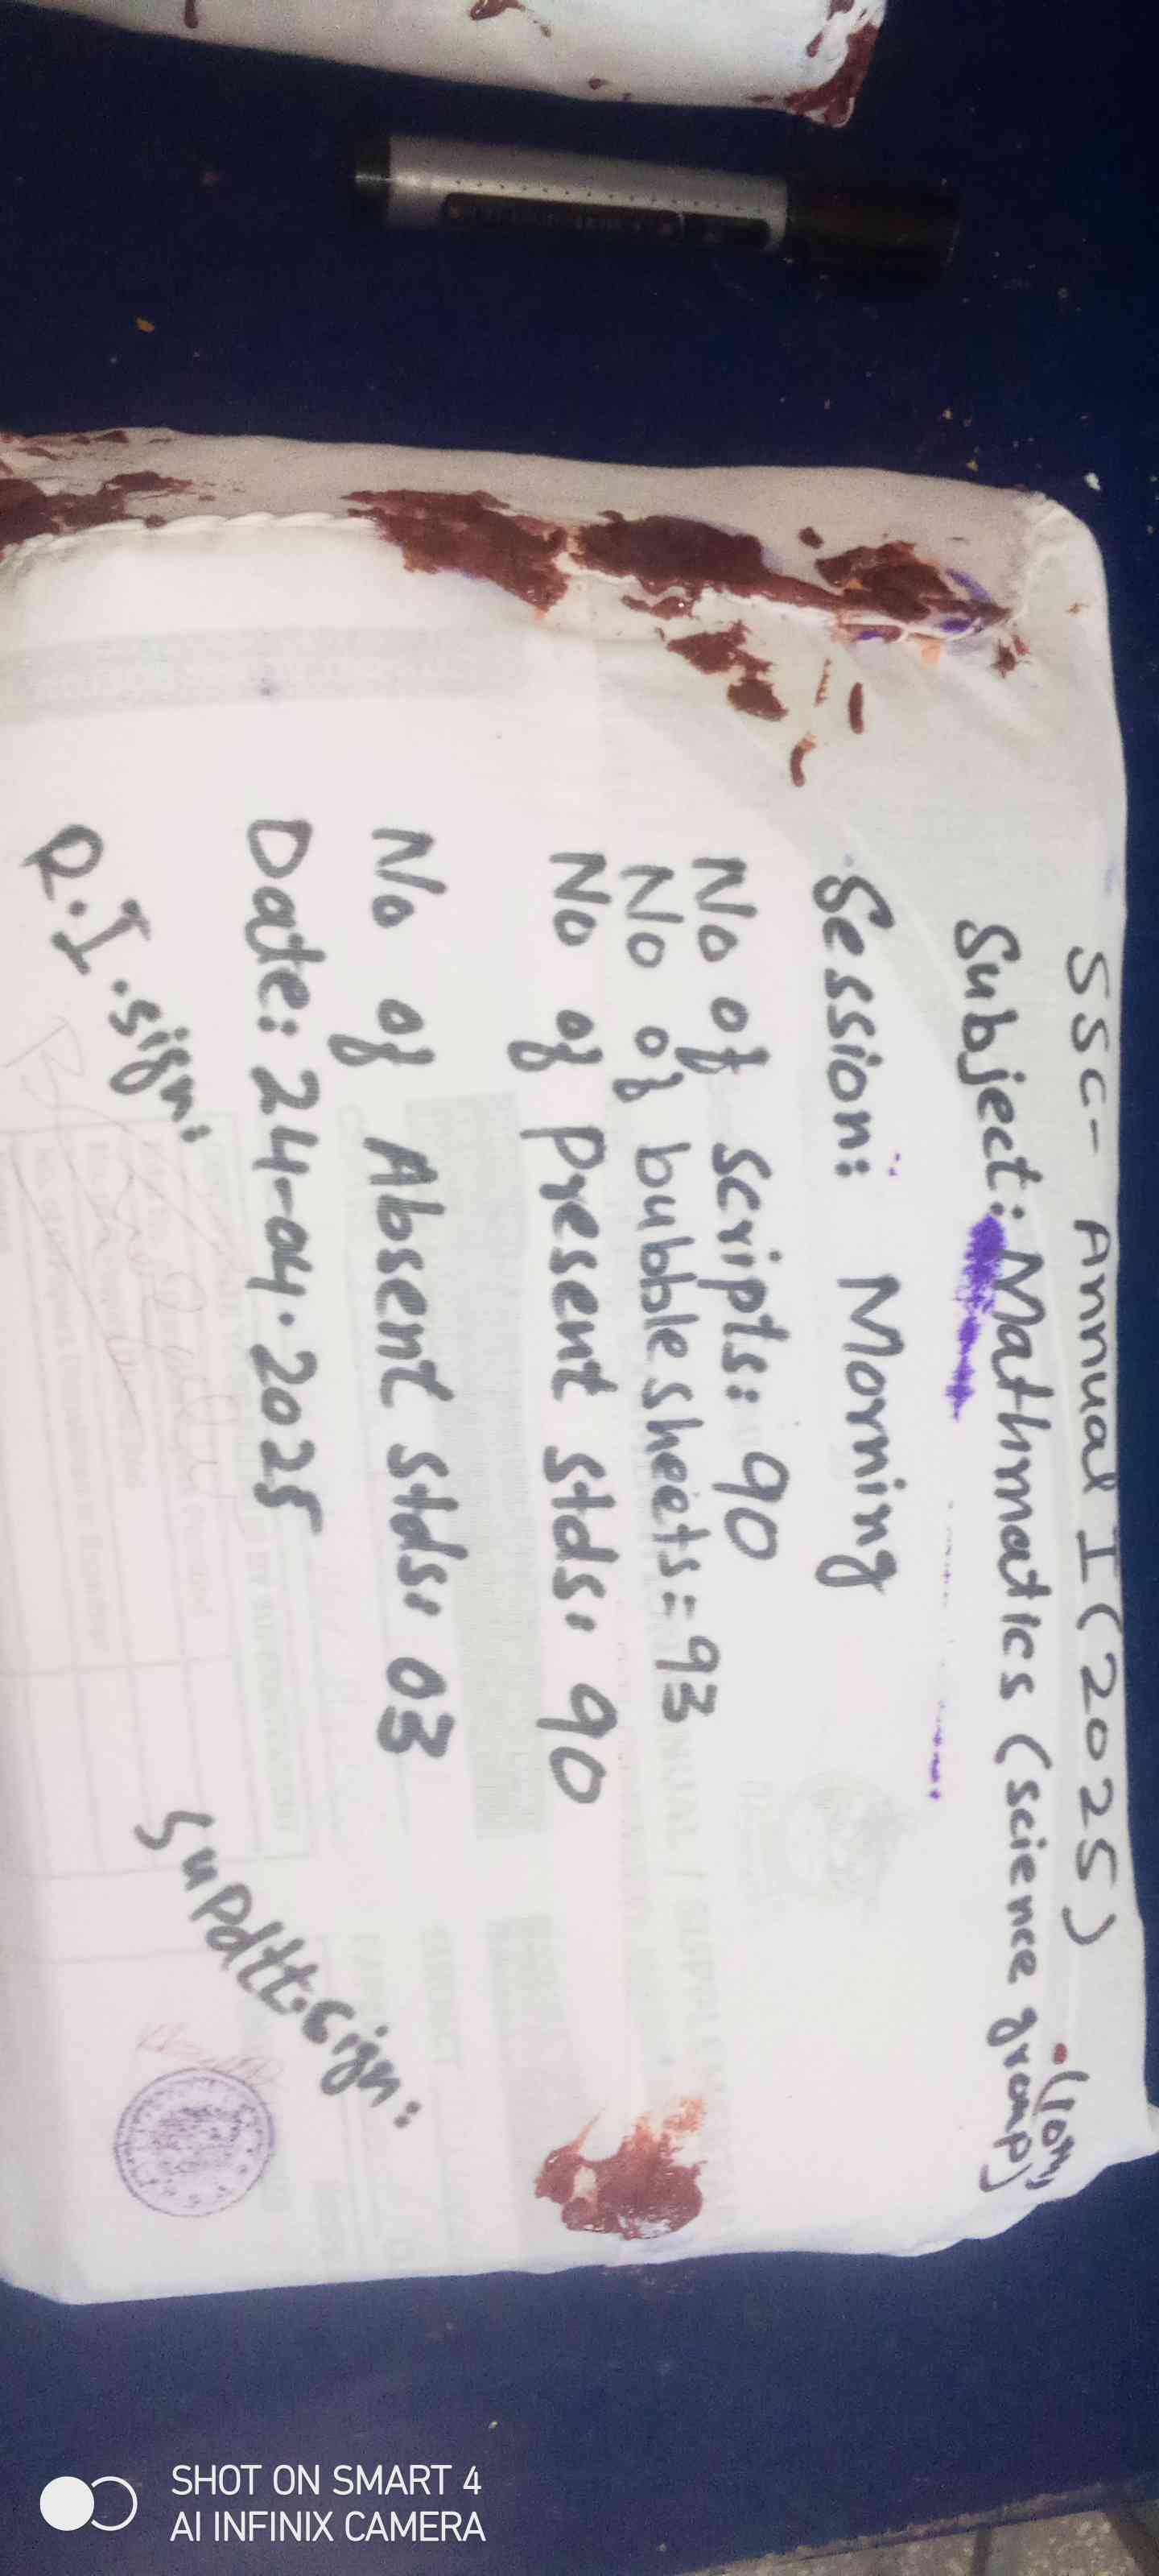 SSC- Annual I (2025)
Subject: Mathmatics (science group)
(10th)
Session: Morning
No of scripts: 90
No of bubble sheets = 93
No of present stds, 90
No of Absent stds, 03
Date: 24-04.2025
R.I. sign:
Supdtt. sign:
SHOT ON SMART 4
AI INFINIX CAMERA